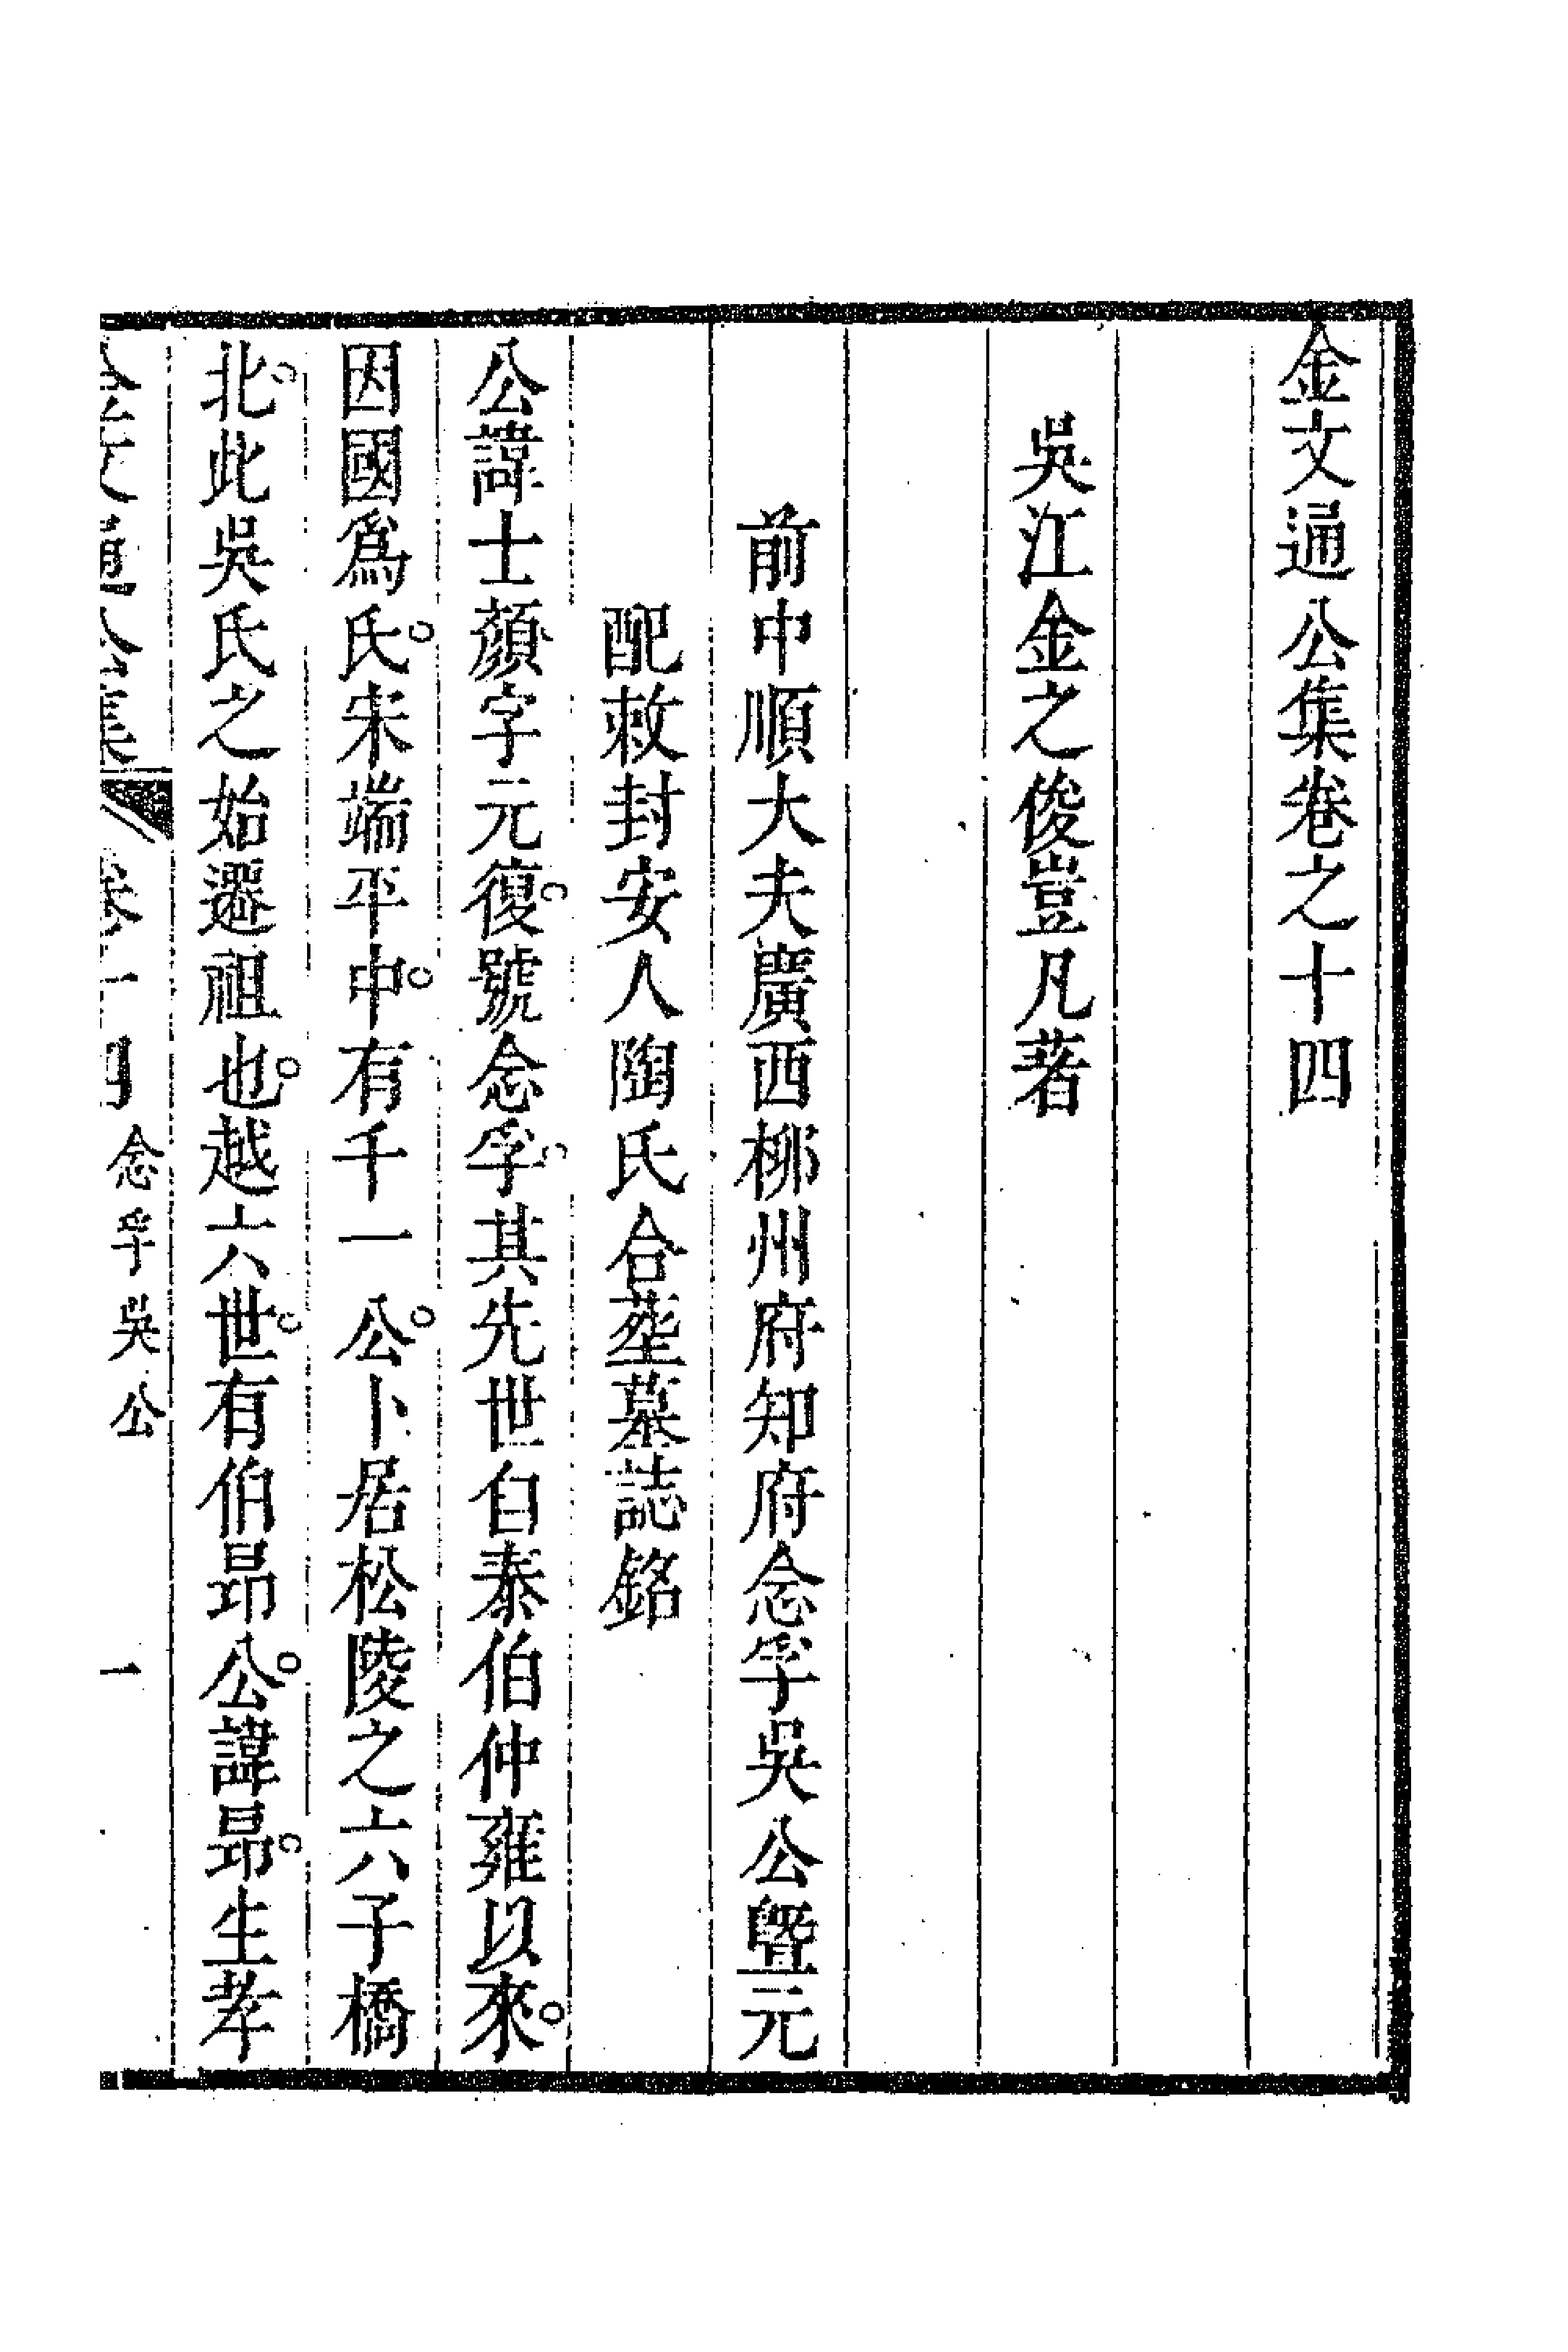 金文通公集卷之十四
吳江金之俊豈凡著
前中順大夫廣西柳州府知府念孚吳公暨元
配敕封安人陶氏合塟墓誌銘
公諱士顏字元復號念孚其先世自泰伯仲雍以來
因國爲氏宋端平中有千一公卜居松陵之六子橋
北此吳氏之始遷祖也越六世有伯昻公諱昻生孝
金文通公集 卷十四 念孚吳公 一